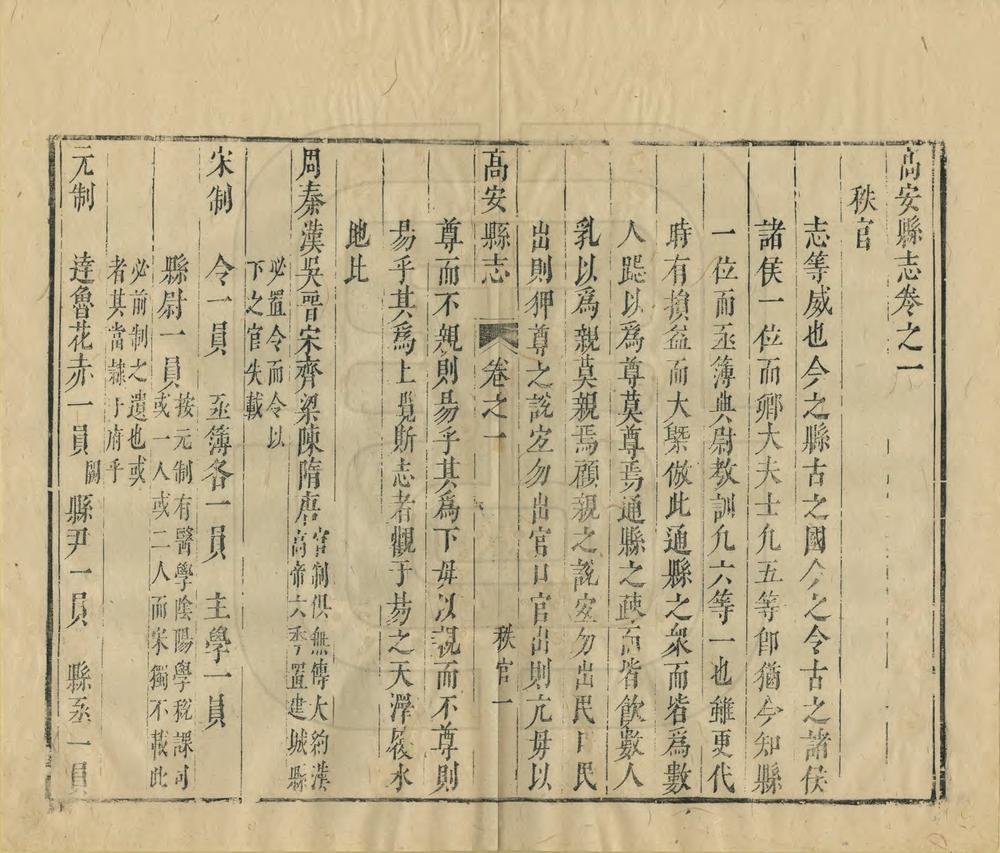 高安縣志卷之一
秩官
志等威也今之縣古之國今之令古之諸侯
諸侯一位而鄉大夫士凡五等卽猶今知縣
一位而丞簿典尉教訓凡六等一也雖更代
時有損益而大槩倣此通縣之衆而皆為數
人跽以為尊莫尊焉通縣之疎而皆飲數人
乳以為親莫親焉顧親之說宜勿出民口民
出則狎尊之說宜勿出官口官出則亢毋以
高安縣志 卷之一 秩官 一
尊而不親則易乎其為下毋以親而不尊則
易乎其為上覽斯志者觀于易之天澤履水
地比
周秦漢吳晉宋齊梁陳隋唐 官制俱無傳大約漢
高帝六年置建城縣
必置令而令以
下之官失載
宋制 令一員 丞簿各一員 主學一員
縣尉一員 按元制有醫學陰陽學稅課司
或一人或二人而宋獨不載此
必前制之遺也或
者其當隸于府乎
元制 達魯花赤一員 闕 縣尹一員 縣丞一員